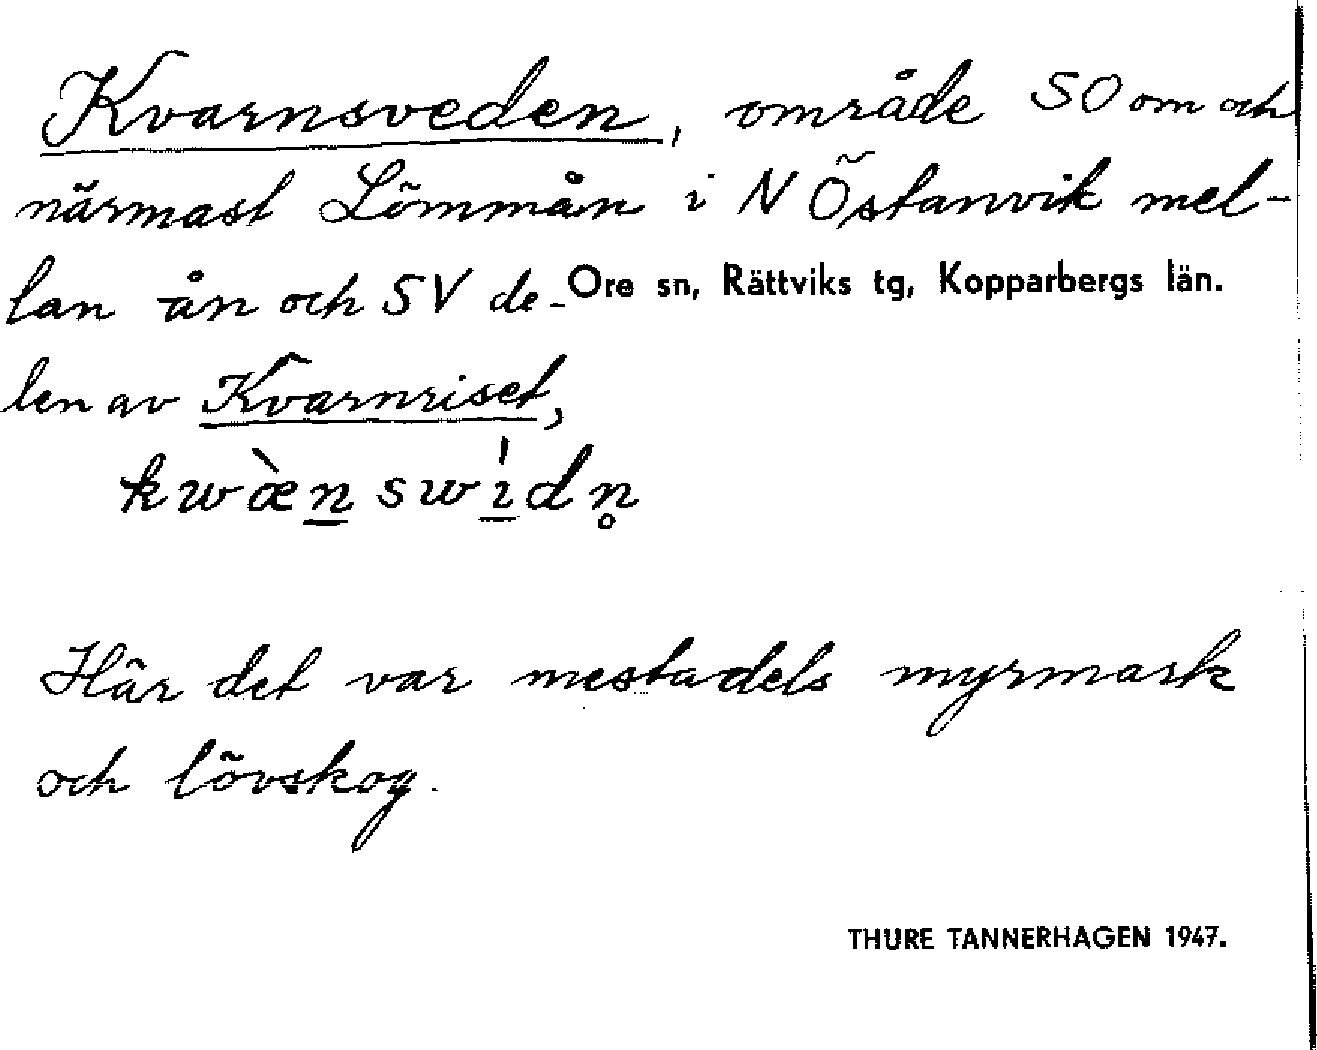 Kvarnsveden, område SO om och
närmast Lömmån i N Östanvik mel-
lan ån och SV de-
Ore sn, Rättviks tg, Kopparbergs län.
len av Kvarnriset,
kwæ̀n̲swi̲̍dn̥
Här det var mestadels myrmark
och lövskog.
THURE TANNERHAGEN 1947.